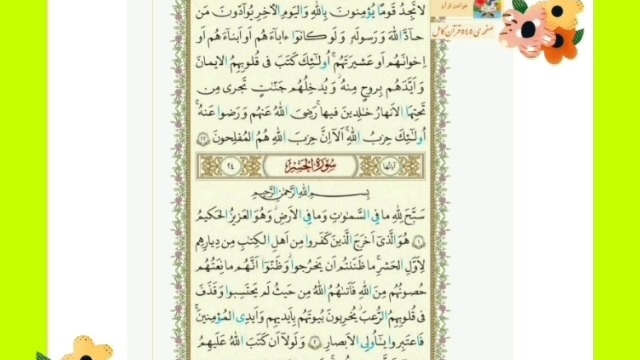 لا تَجِدُ قَومًا يُؤمِنونَ بِاللّٰهِ وَاليَومِ الآخِرِ يُوآدّونَ مَن
حآدَّ اللّٰهَ وَرَسولَهُ وَلَو كانوا ءابآءَهُم أَو أَبنآءَهُم أَو
إِخوانَهُم أَو عَشيرَتَهُم أُولٰئِكَ كَتَبَ فی قُلوبِهِمُ الإيمانَ
وَأَيَّدَهُم بِروحٍ مِنهُ وَيُدخِلُهُم جَنّٰتٍ تَجری مِن
تَحتِهَا الأَنهارُ خٰلِدينَ فيها رَضِیَ اللّٰهُ عَنهُم وَرَضوا عَنهُ
أُولٰئِكَ حِزبُ اللّٰهِ أَلآ إِنَّ حِزبَ اللّٰهِ هُمُ المُفلِحونَ ﴿٢٢﴾
آیاتها سورة الحشر ٢٤
بِسمِ اللّٰهِ الرَّحمٰنِ الرَّحيمِ
سَبَّحَ لِلّٰهِ ما فِی السَّمٰوٰتِ وَما فِی الأَرضِ وَهُوَ العَزيزُ الحَكيمُ
﴿١﴾ هُوَ الَّذی أَخرَجَ الَّذينَ كَفَروا مِن أَهلِ الكِتٰبِ مِن دِيارِهِم
لِأَوَّلِ الحَشرِ ما ظَنَنتُم أَن يَخرُجوا وَظَنّوا أَنَّهُم مانِعَتُهُم
حُصونُهُم مِنَ اللّٰهِ فَأَتىٰهُمُ اللّٰهُ مِن حَيثُ لَم يَحتَسِبوا وَقَذَفَ
فی قُلوبِهِمُ الرُّعبَ يُخرِبونَ بُيوتَهُم بِأَيديهِم وَأَيدِی المُؤمِنينَ
فَاعتَبِروا يٰأُولِی الأَبصارِ ﴿٢﴾ وَلَولا أَن كَتَبَ اللّٰهُ عَلَيهِمُ
خواندن قرآن
صفحه‌ی ۵۴۵ قرآن کامل